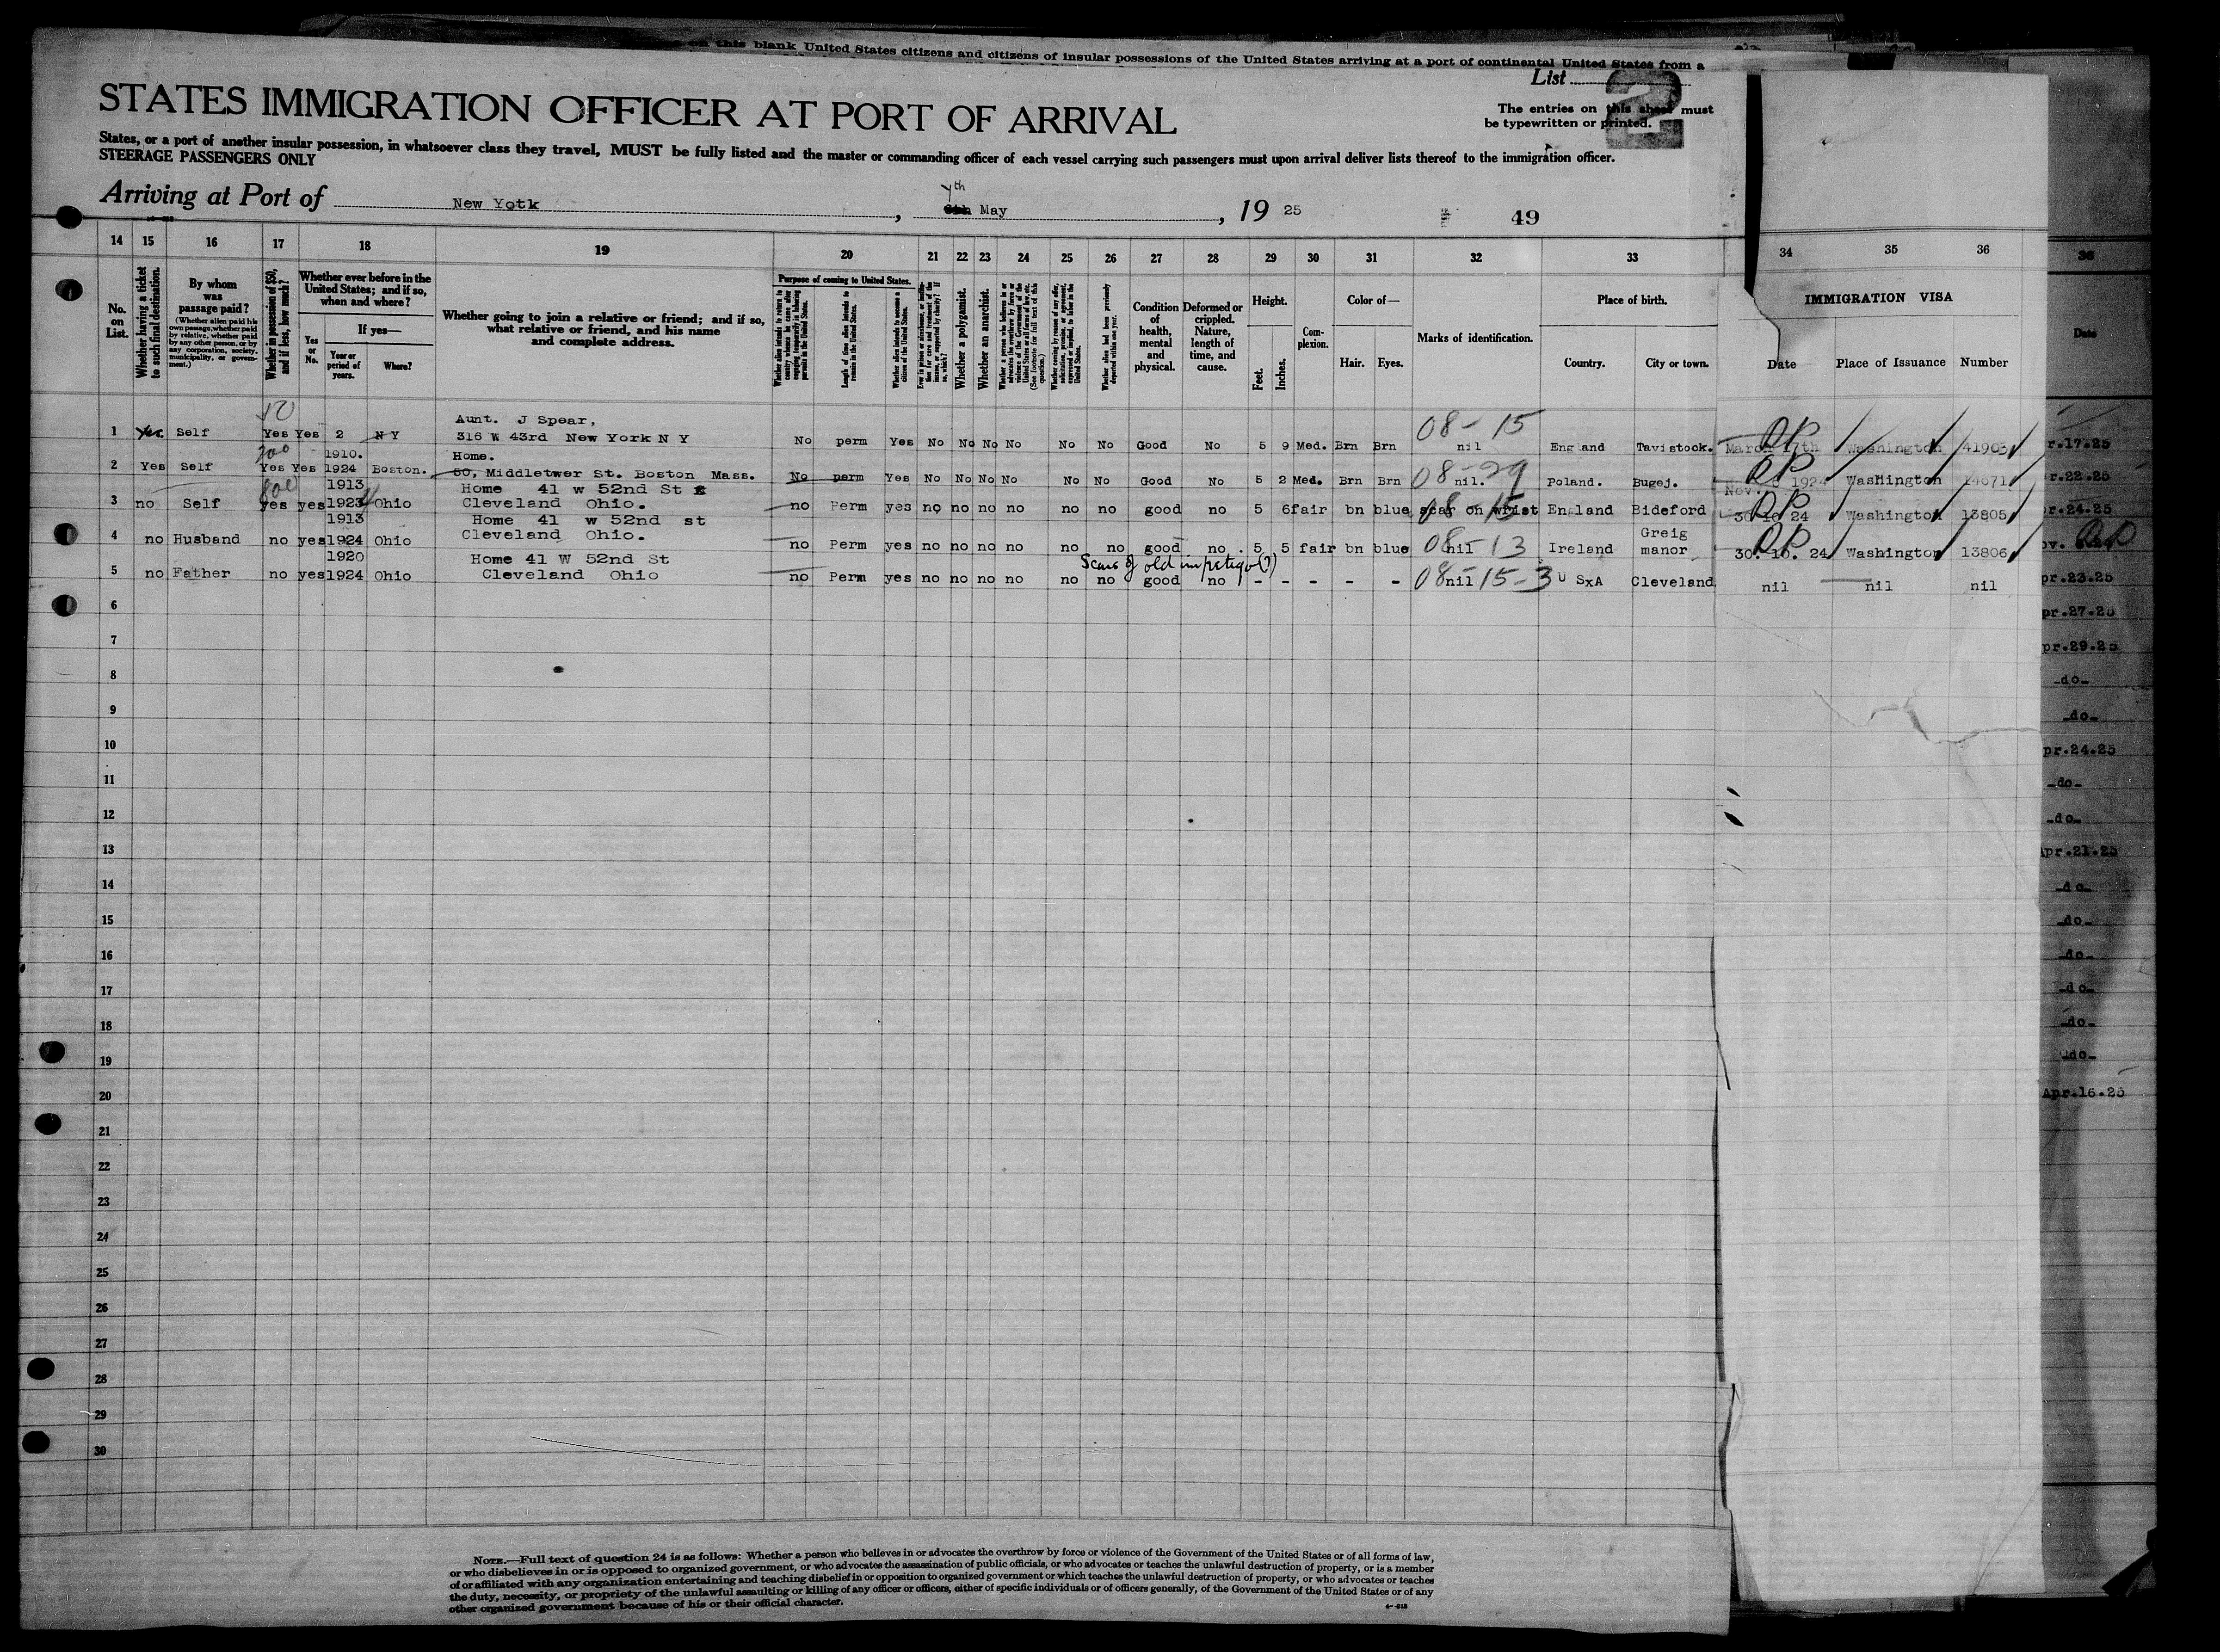 on this blank United States citizens and citizens of insular possessions of the United States arriving at a port of continental United States from a
List 2
STATES IMMIGRATION OFFICER AT PORT OF ARRIVAL
The entries on this sheet must
be typewritten or printed.
States, or a port of another insular possession, in whatsoever class they travel, MUST be fully listed and the master or commanding officer of each vessel carrying such passengers must upon arrival deliver lists thereof to the immigration officer.
STEERAGE PASSENGERS ONLY
Arriving at Port of New Yotk, 7th May, 19 25 49
14 15 16 17 18 19 20 21 22 23 24 25 26 27 28 29 30 31 32 33 34 35 36
No. on List.
Whether having a ticket to such final destination.
By whom was passage paid?
(Whether alien paid his own passage, whether paid by relative, whether paid by any other person, or by any corporation, society, municipality, or government.)
Whether in possession of $50, and if less, how much?
Whether ever before in the United States; and if so, when and where?
Yes or No.
If yes—
Year or period of years.
Where?
Whether going to join a relative or friend; and if so, what relative or friend, and his name and complete address.
Purpose of coming to United States.
Length of time alien intends to remain in the United States.
Whether alien intends to become a citizen of the United States.
Whether a polygamist.
Whether an anarchist.
Whether alien had been previously deported within one year.
Condition of health, mental and physical.
Deformed or crippled. Nature, length of time, and cause.
Height.
Feet. Inches.
Complexion.
Color of—
Hair. Eyes.
Marks of identification.
Place of birth.
Country. City or town.
IMMIGRATION VISA
Date Place of Issuance Number
Date
50 Aunt. J Spear, 08-15
1 Yes Self Yes Yes 2 N Y 316 W 43rd New York N Y No perm Yes No No No No No No Good No 5 9 Med. Brn Brn nil England Tavistock. March 17th Washington 41903
200 1910. Home.
2 Yes Self Yes Yes 1924 Boston. 80, Middletwer St. Boston Mass. No perm Yes No No No No No No Good No 5 2 Med. Brn Brn nil. 08-29 Poland. Bugej. Nov. 1924 Washington 14671
800 1913 Home 41 w 52nd St
3 no Self yes yes 1923 Ohio Cleveland Ohio. no Perm yes no no no no no no good no 5 6 fair bn blue scar on wrist 08-15 England Bideford 30 10 24 Washington 13805
1913 Home 41 w 52nd st Greig
4 no Husband no yes 1924 Ohio Cleveland Ohio. no Perm yes no no no no no no good no. 5 5 fair bn blue nil 08-13 Ireland manor 30. 10. 24 Washington 13806
1920 Home 41 W 52nd St Scars of old impetigo (?)
5 no Father no yes 1924 Ohio Cleveland Ohio no Perm yes no no no no no no good no - - - - - nil 08-15-3 U SxA Cleveland nil nil nil
6
7
8
9
10
11
12
13
14
15
16
17
18
19
20
21
22
23
24
25
26
27
28
29
30
r.17.25
r.22.25
r.24.25
pr.23.25
pr.27.25
pr.29.25
-do-
-do-
pr.24.25
-do-
-do-
Apr.21.25
-do-
-do-
-do-
-do-
-do-
-do-
Apr.16.25
NOTE.—Full text of question 24 is as follows: Whether a person who believes in or advocates the overthrow by force or violence of the Government of the United States or of all forms of law,
or who disbelieves in or is opposed to organized government, or who advocates the assassination of public officials, or who advocates or teaches the unlawful destruction of property, or is a member
of or affiliated with any organization entertaining and teaching disbelief in or opposition to organized government or which teaches the unlawful destruction of property, or who advocates or teaches
the duty, necessity, or propriety of the unlawful assaulting or killing of any officer or officers, either of specific individuals or of officers generally, of the Government of the United States or of any
other organized government because of his or their official character.